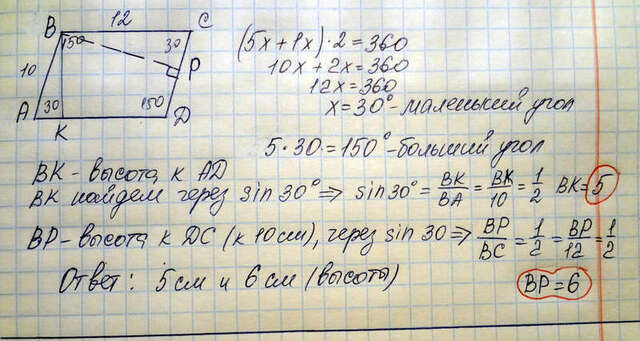 12
B C
150 30
10 P
A 30 150 D
K
(5x+1x)·2=360
10x+2x=360
12x=360
x=30°-маленький угол
5·30=150°-больший угол
BK-высота к AD
BK найдем через sin 30° ⇒ sin 30° = BK/BA = BK/10 = 1/2 BK=5
BP-высота к DC (к 10см), через sin 30 ⇒ BP/BC = 1/2 = BP/12 = 1/2
Ответ: 5см и 6см (высоты) BP=6